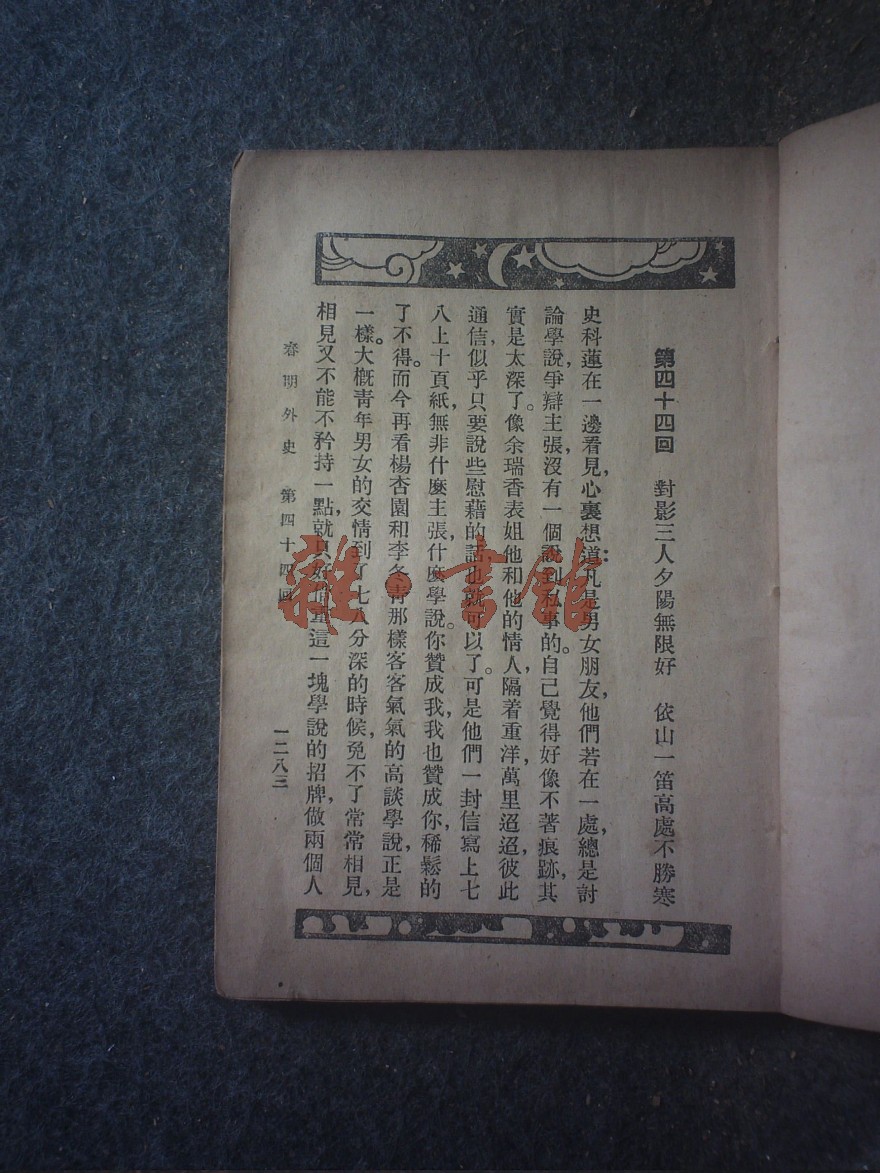 第四十四回　對影三人夕陽無限好　依山一笛高處不勝寒
史科蓮在一邊看見，心裏想道：凡是男女朋友，他們若在一處，總是討
論學說，爭辯主張，沒有一個說到私事的。自己覺得好像不著痕跡，其
實是太深了。像余瑞香表姐他和他的情人，隔着重洋，萬里迢迢，彼此
通信，似乎只要說些慰藉的話，也就可以了。可是他們一封信寫上七
八上十頁紙，無非什麼主張，什麼學說。你贊成我，我也贊成你，稀鬆的
了不得。而今再看楊杏園和李冬青那樣客客氣氣的高談學說，正是
一樣。大概青年男女的交情，到了七八分深的時候，免不了常常相見，
相見又不能不矜持一點，就只好借重這一塊學說的招牌，做兩個人
春明外史　第四十四回　一二八三
雜·書館